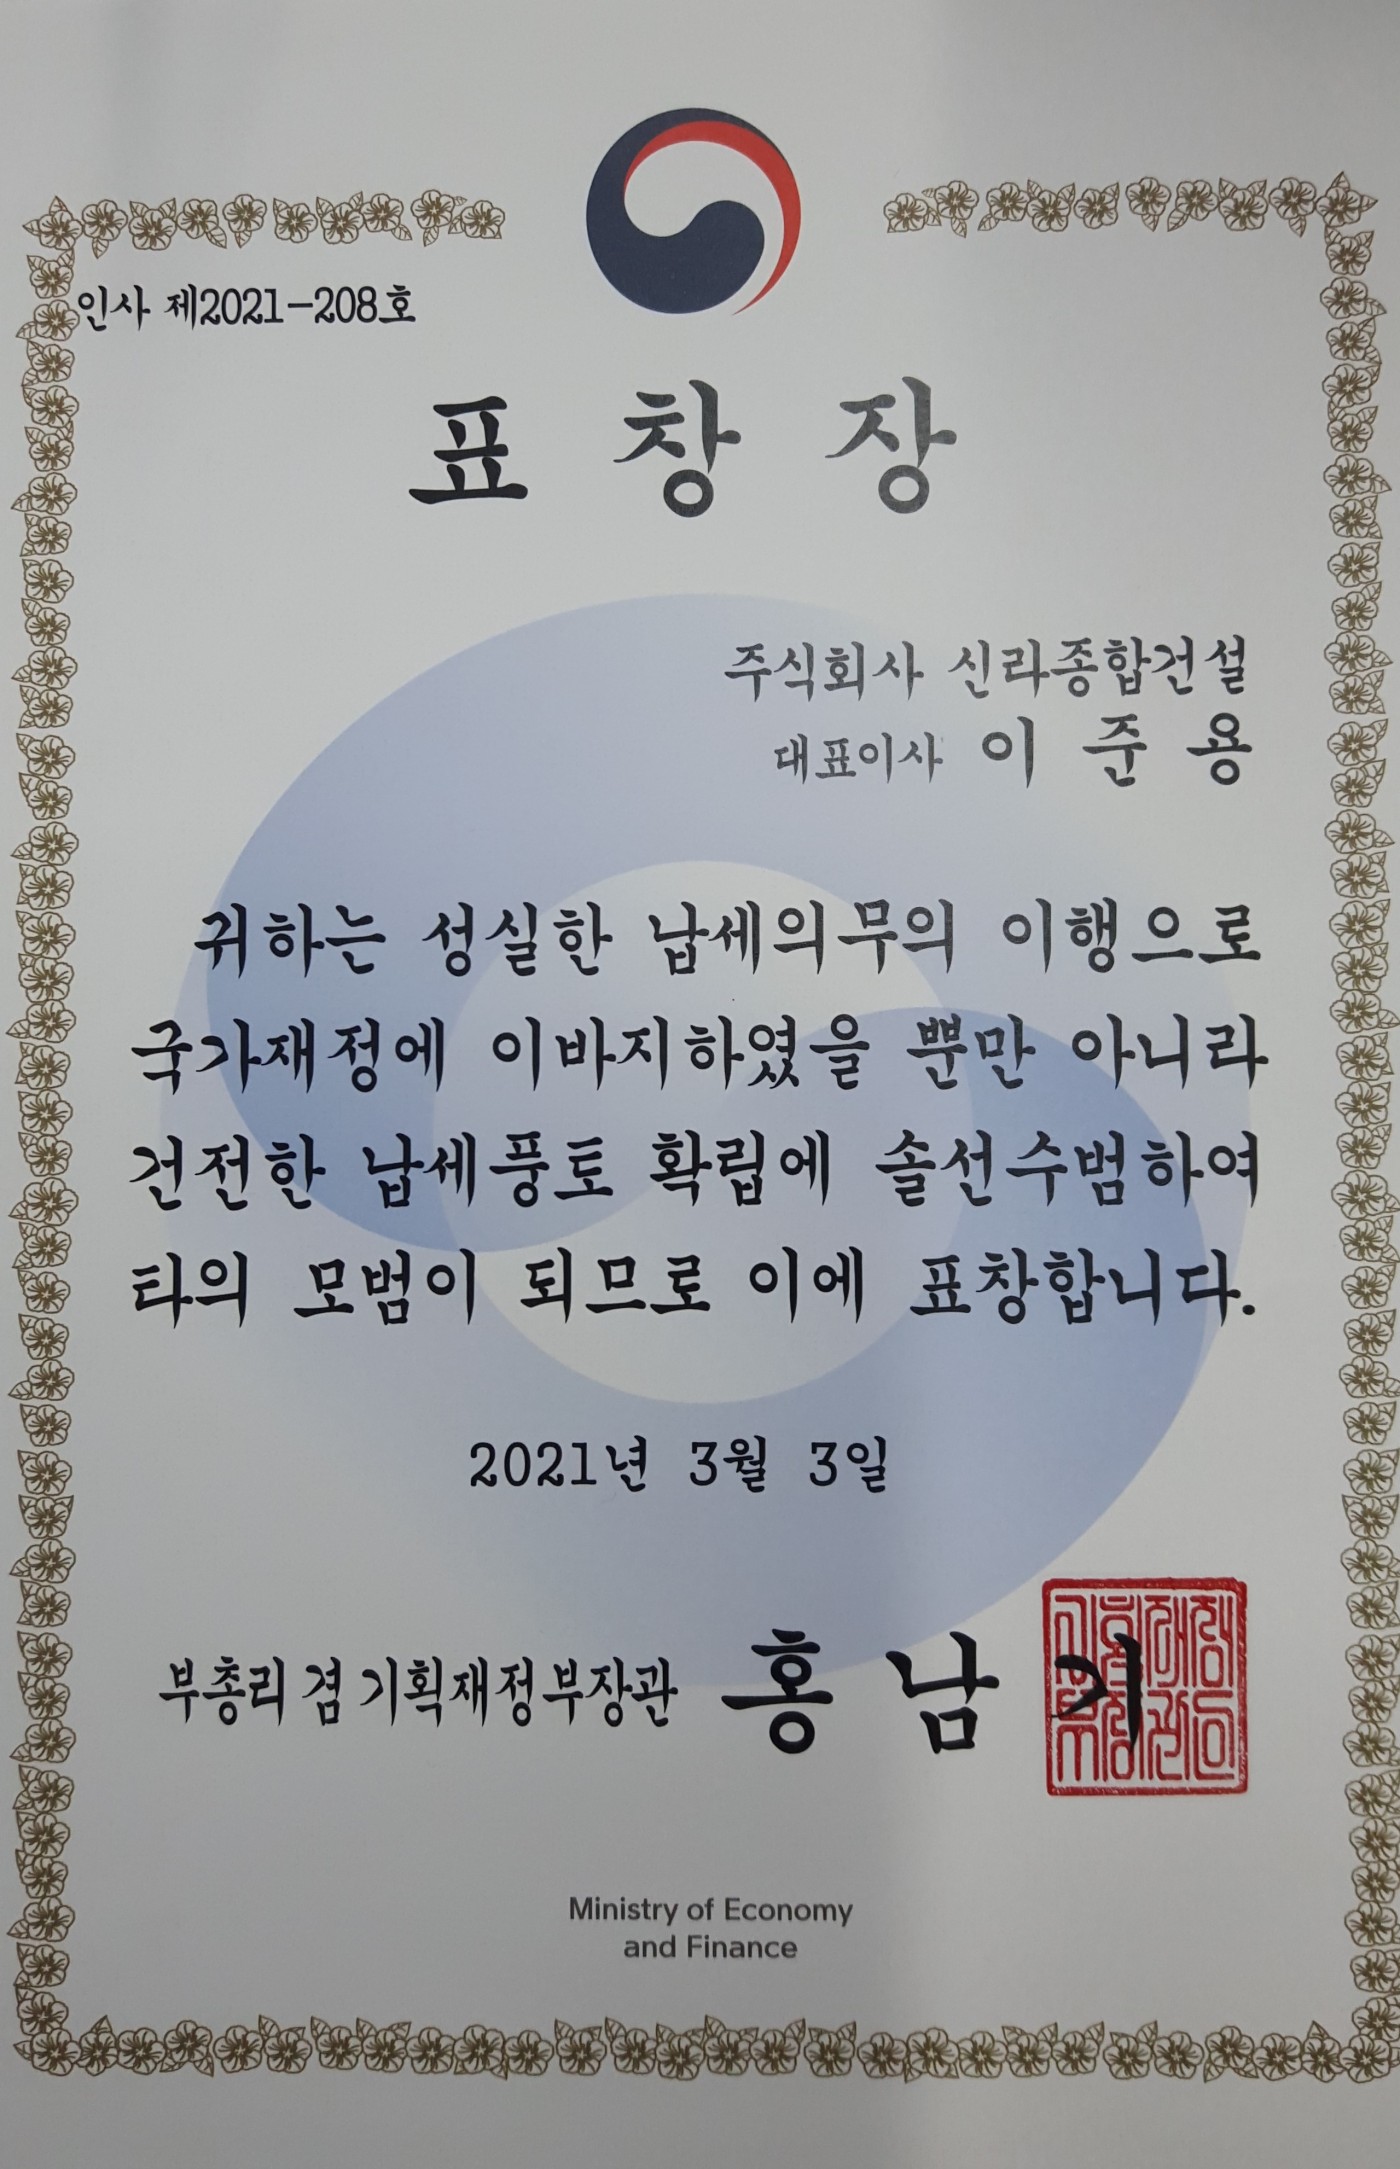 인사 제2021-208호
표 창 장
주식회사 신라종합건설
대표이사 이 준 용
귀하는 성실한 납세의무의 이행으로
국가재정에 이바지하였을 뿐만 아니라
건전한 납세풍토 확립에 솔선수범하여
타의 모범이 되므로 이에 표창합니다.
2021년 3월 3일
부총리 겸 기획재정부장관 홍 남 기
Ministry of Economy
and Finance